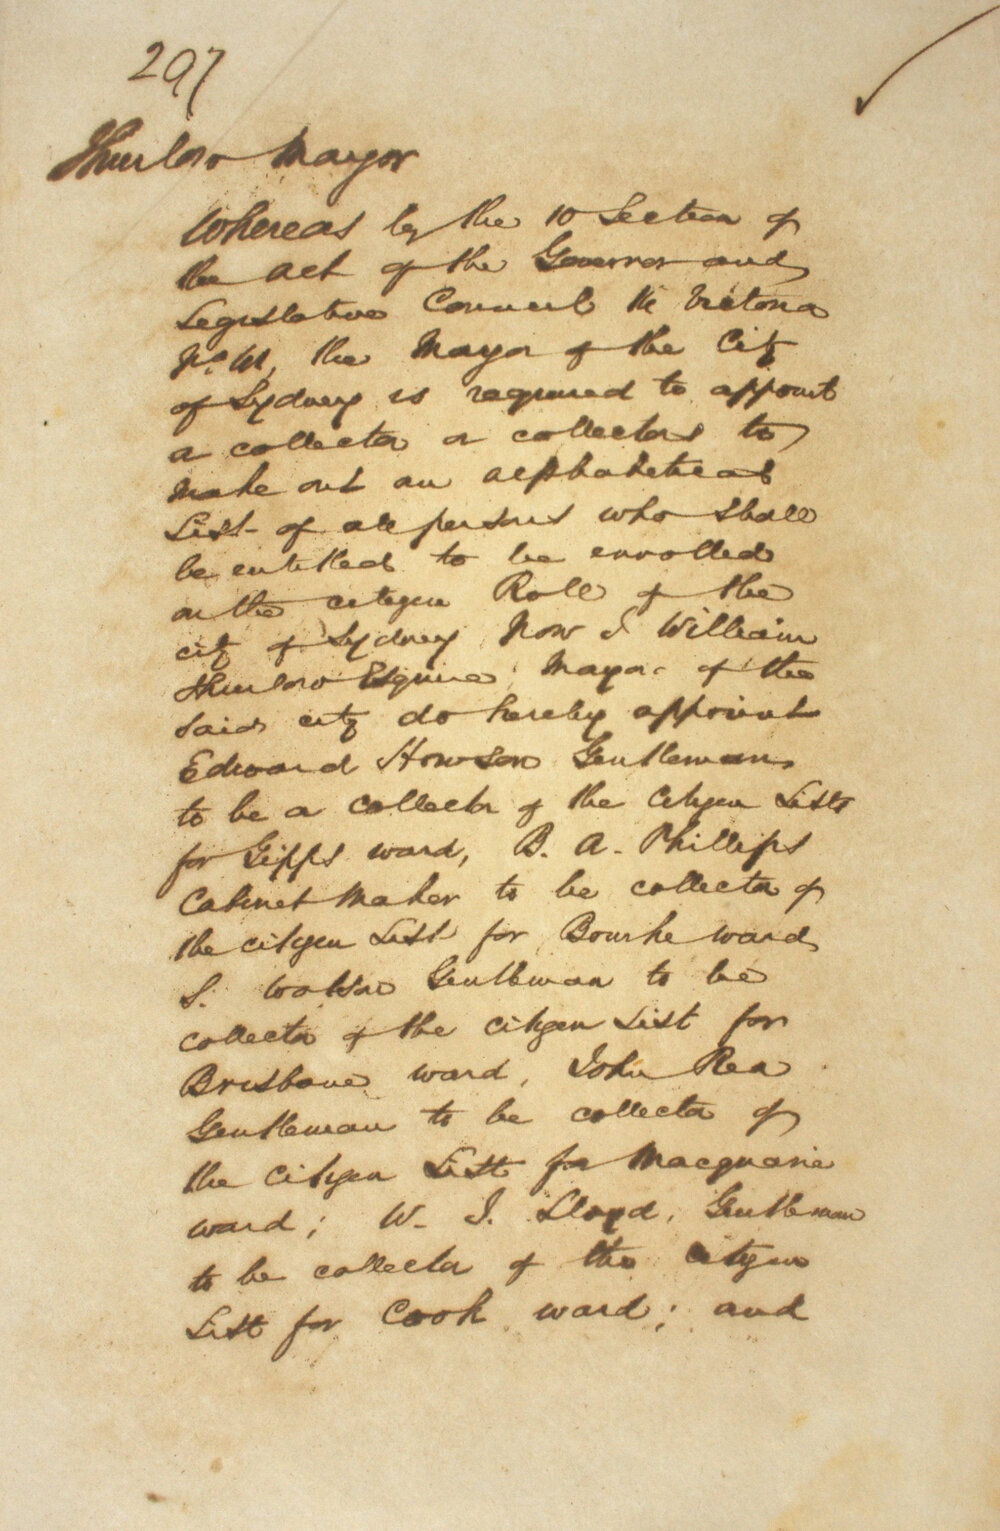 297
Thurlow Mayor
Whereas by the 10 Section of
the act of the Governor and
Legislative Council 14 Victoria
No. 41, the Mayor of the City
of Sydney is required to appoint
a collector or collectors to
make out an alphabetical
List of all persons who shall
be entitled to be enrolled
on the citizen Roll of the
city of Sydney Now I William
Thurlow Esquire Mayor of the
said city do hereby appoint
Edward Howson Gentleman
to be a collector of the Citizen Lists
for Gipps ward, B. A. Phillips
Cabinet Maker to be collector of
the citizen List for Bourke ward
S. Watson Gentleman to be
collector of the citizen List for
Brisbane ward, John Rea
Gentleman to be collector of
the Citizen List for Macquarie
ward; W. J. Lloyd, Gentleman
to be collector of the citizen
List for Cook ward; and